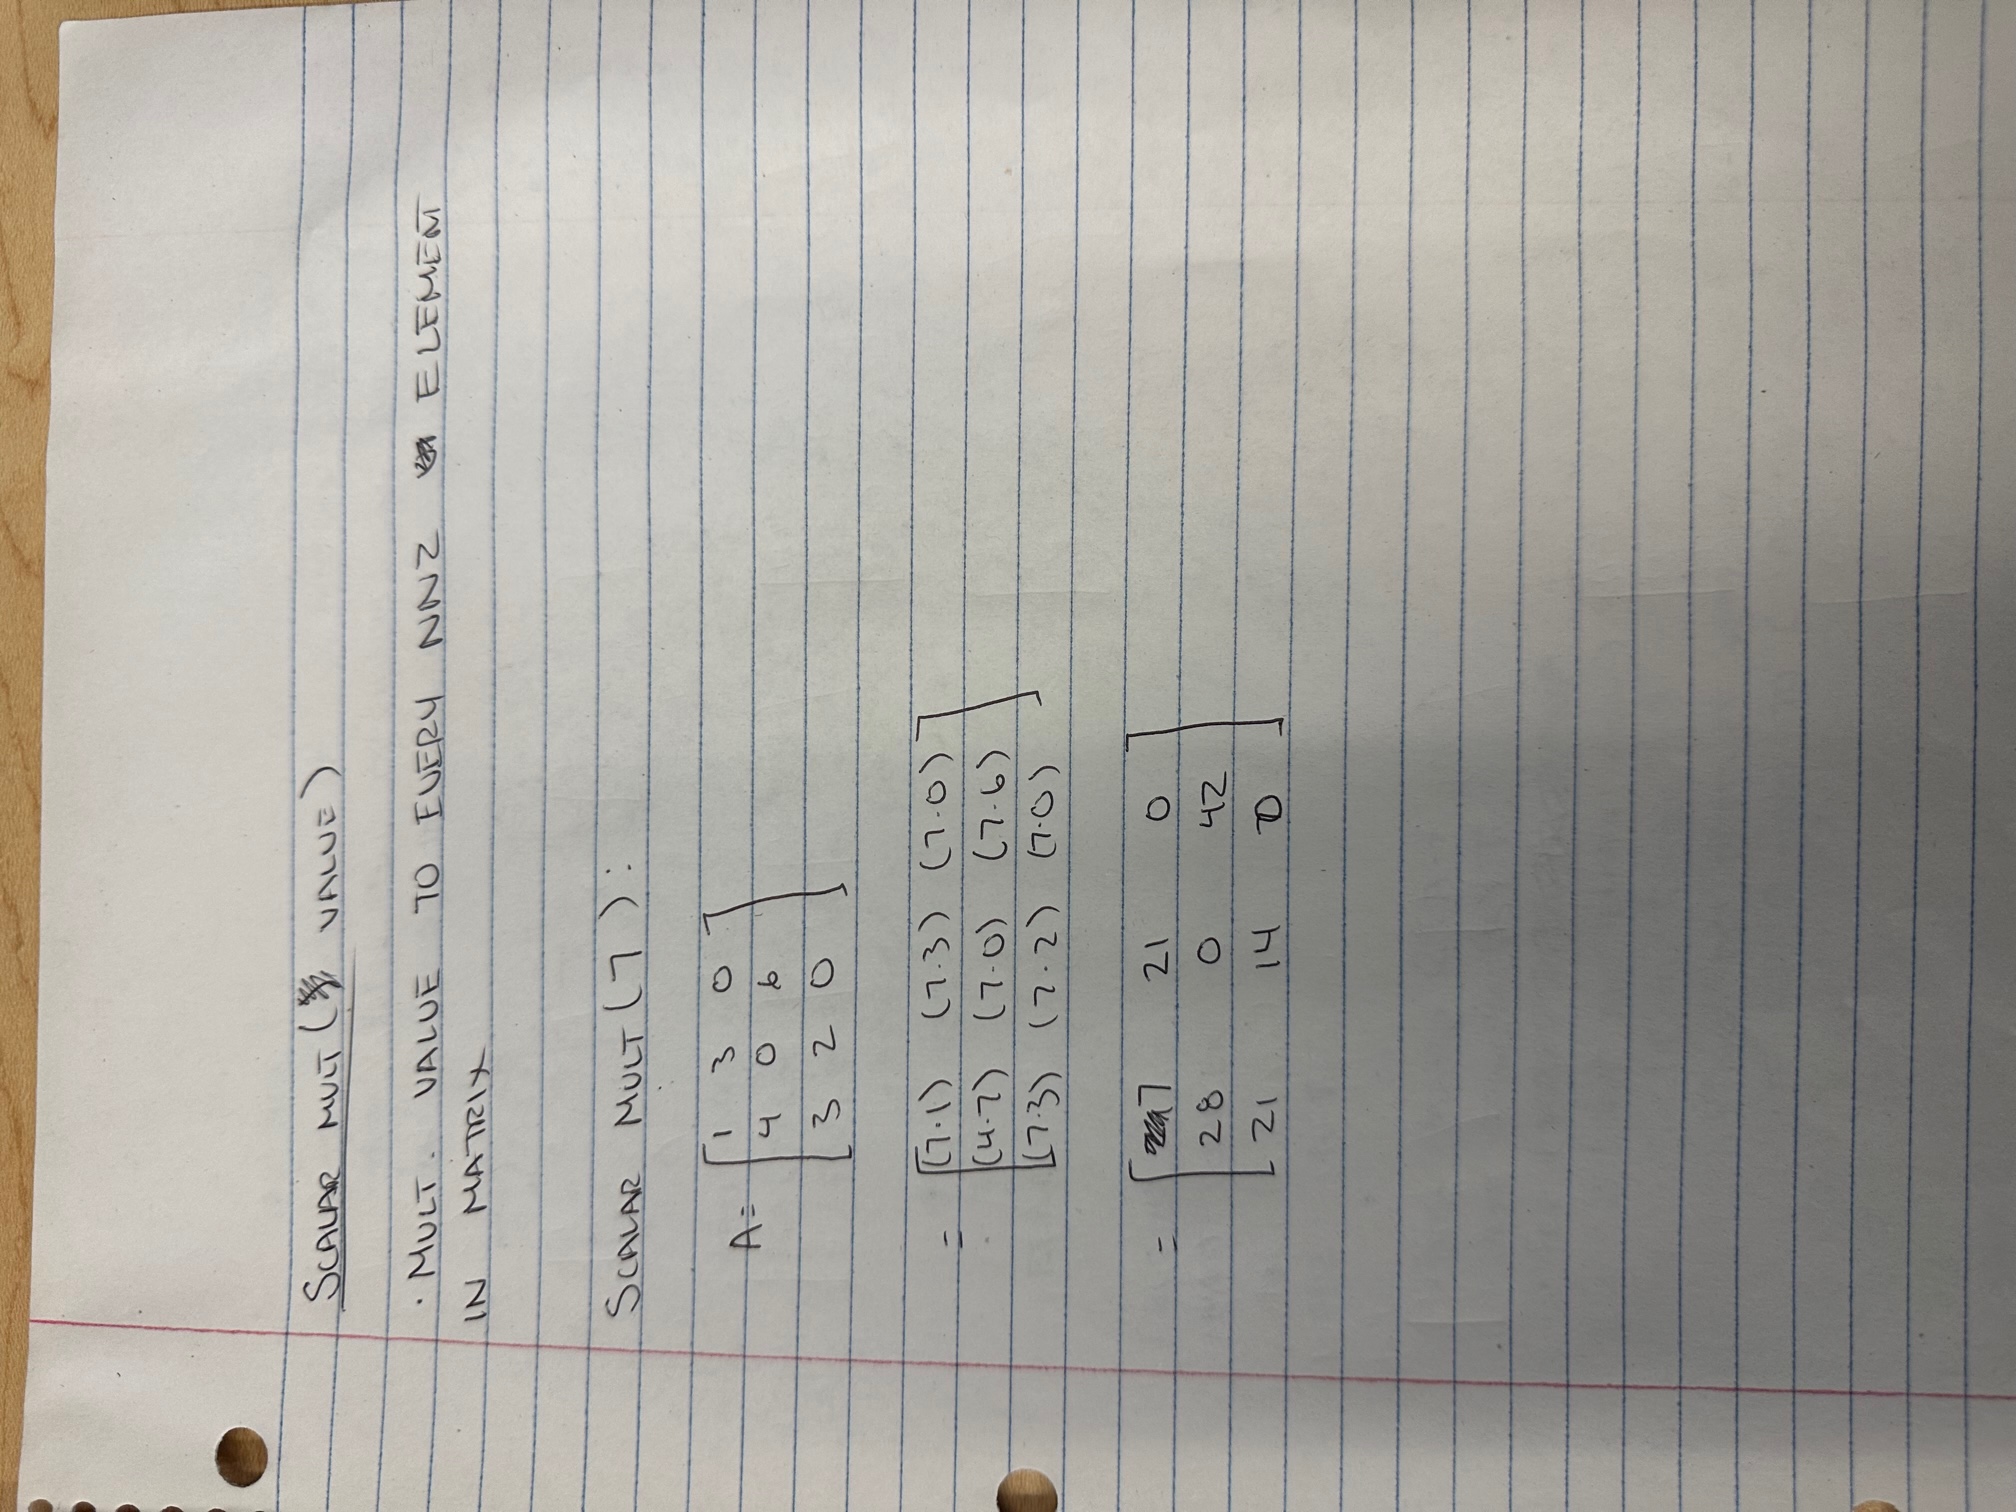 SCALAR MULT ( VALUE)
· MULT. VALUE TO EVERY NNZ ELEMENT
IN MATRIX
SCALAR MULT (7):
A= [1 3 0
4 0 6
3 2 0]
= [(7·1) (7·3) (7·0)
(4·7) (7·0) (7·6)
(7·3) (7·2) (7·0)]
= [7 21 0
28 0 42
21 14 0]